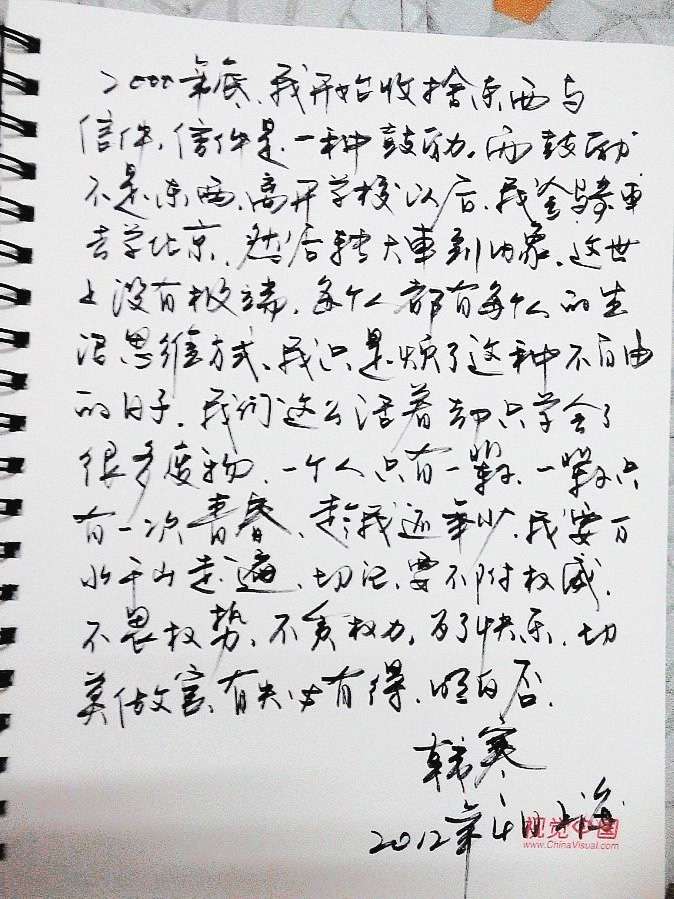 2000年底、我开始收拾东西与
信件，信件是一种鼓励。而鼓励
不是东西，离开学校以后，我会骑車
去学北京，然后转大車到内蒙，这世
上没有极端，每个人都有每个人的生
活思维方式、我只是烦了这种不自由
的日子，我们这么活着却只学会了
很多废物，一个人只有一辈子，一辈子只
有一次青春，趁我还年少，我要万
水千山走遍，切记，要不附权威，
不畏权势，不贪权力，为了快乐，切
莫做官，有失必有得，明白否，
韩寒
2012年4月上海
视觉中国
www.ChinaVisual.com